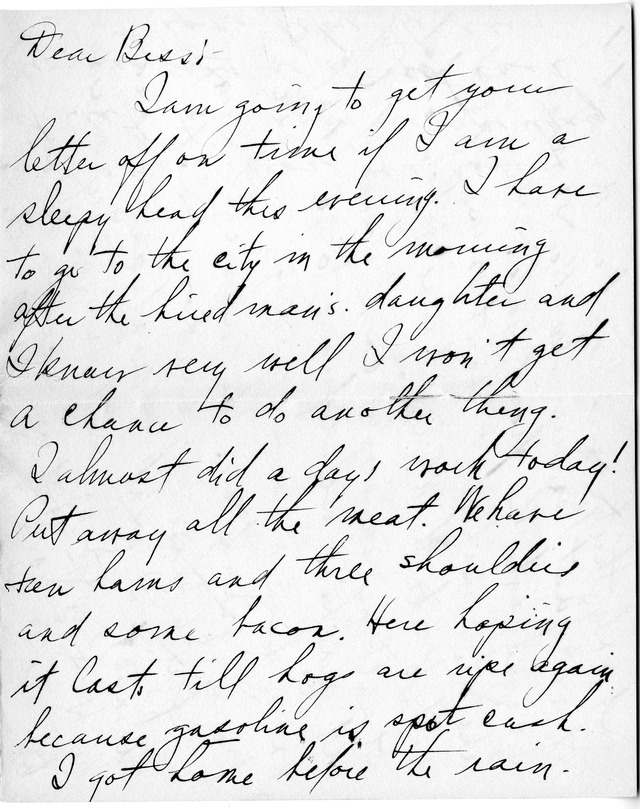 Dear Bess:-
I am going to get your
letter off on time if I am a
sleepy head this evening. I have
to go to the city in the morning
after the hired man's daughter and
I know very well I won't get
a chance to do another thing.
I almost did a days work today!
Put away all the meat. We have
ten hams and three shoulders
and some bacon. Here hoping
it lasts till hogs are ripe again
because gasoline is spot cash.
I got home before the rain.